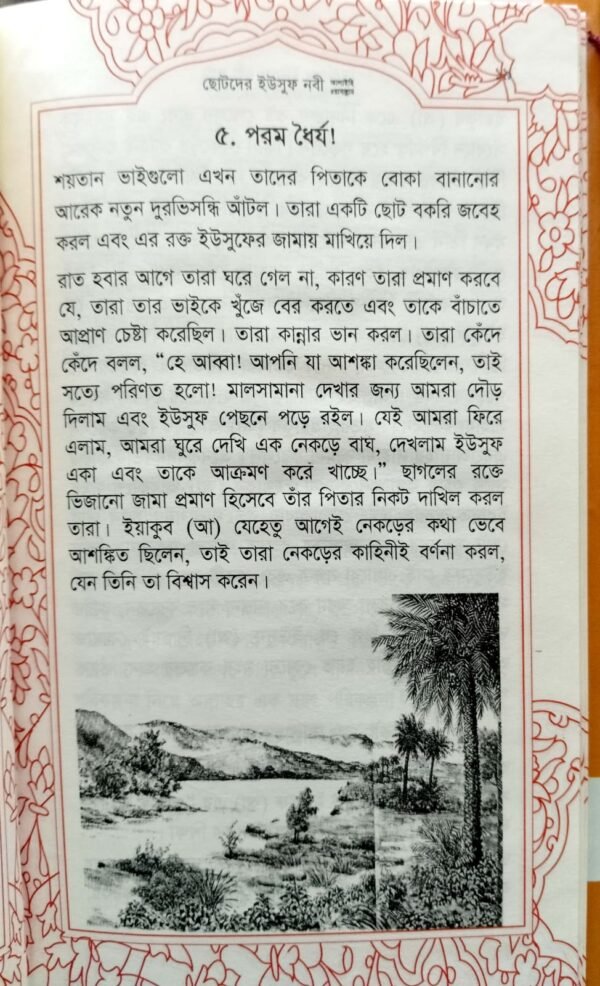 ছোটদের ইউসুফ নবী আলাইহি
৫. পরম ধৈর্য!
শয়তান ভাইগুলো এখন তাদের পিতাকে বোকা বানানোর
আরেক নতুন দুরভিসন্ধি আঁটল। তারা একটি ছোট বকরি জবেহ
করল এবং এর রক্ত ইউসুফের জামায় মাখিয়ে দিল।
রাত হবার আগে তারা ঘরে গেল না, কারণ তারা প্রমাণ করবে
যে, তারা তার ভাইকে খুঁজে বের করতে এবং তাকে বাঁচাতে
আপ্রাণ চেষ্টা করেছিল। তারা কান্নার ভান করল। তারা কেঁদে
কেঁদে বলল, “হে আব্বা! আপনি যা আশঙ্কা করেছিলেন, তাই
সত্যে পরিণত হলো! মালসামানা দেখার জন্য আমরা দৌড়
দিলাম এবং ইউসুফ পেছনে পড়ে রইল। যেই আমরা ফিরে
এলাম, আমরা ঘুরে দেখি এক নেকড়ে বাঘ, দেখলাম ইউসুফ
একা এবং তাকে আক্রমণ করে খাচ্ছে।” ছাগলের রক্তে
ভিজানো জামা প্রমাণ হিসেবে তাঁর পিতার নিকট দাখিল করল
তারা। ইয়াকুব (আ) যেহেতু আগেই নেকড়ের কথা ভেবে
আশঙ্কিত ছিলেন, তাই তারা নেকড়ের কাহিনীই বর্ণনা করল,
যেন তিনি তা বিশ্বাস করেন।